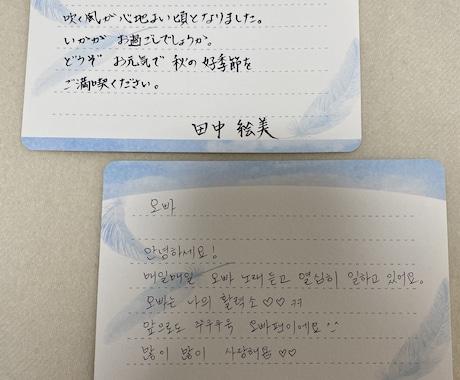 吹く風が心地よい頃となりました。
いかがお過ごしでしょうか。
どうぞ お元気で 秋の好季節を
ご満喫ください。
田中 絵美
오빠
안녕하세요!
매일매일 오빠 노래 듣고 열심히 일하고 있어요.
오빠는 나의 활력소♡♡ ㅋㅋ
앞으로도 쭈우우욱 오빠편이에요^^
많이 많이 사랑해용 ♡♡